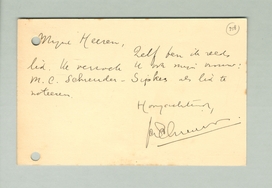 718
Mijne Heeren,
Zelf ben ik reeds
lid. Ik verzoek U ook mijn vrouw:
M. C. Schreuder - Sipkes als lid te
noteeren
Hoogachtend,